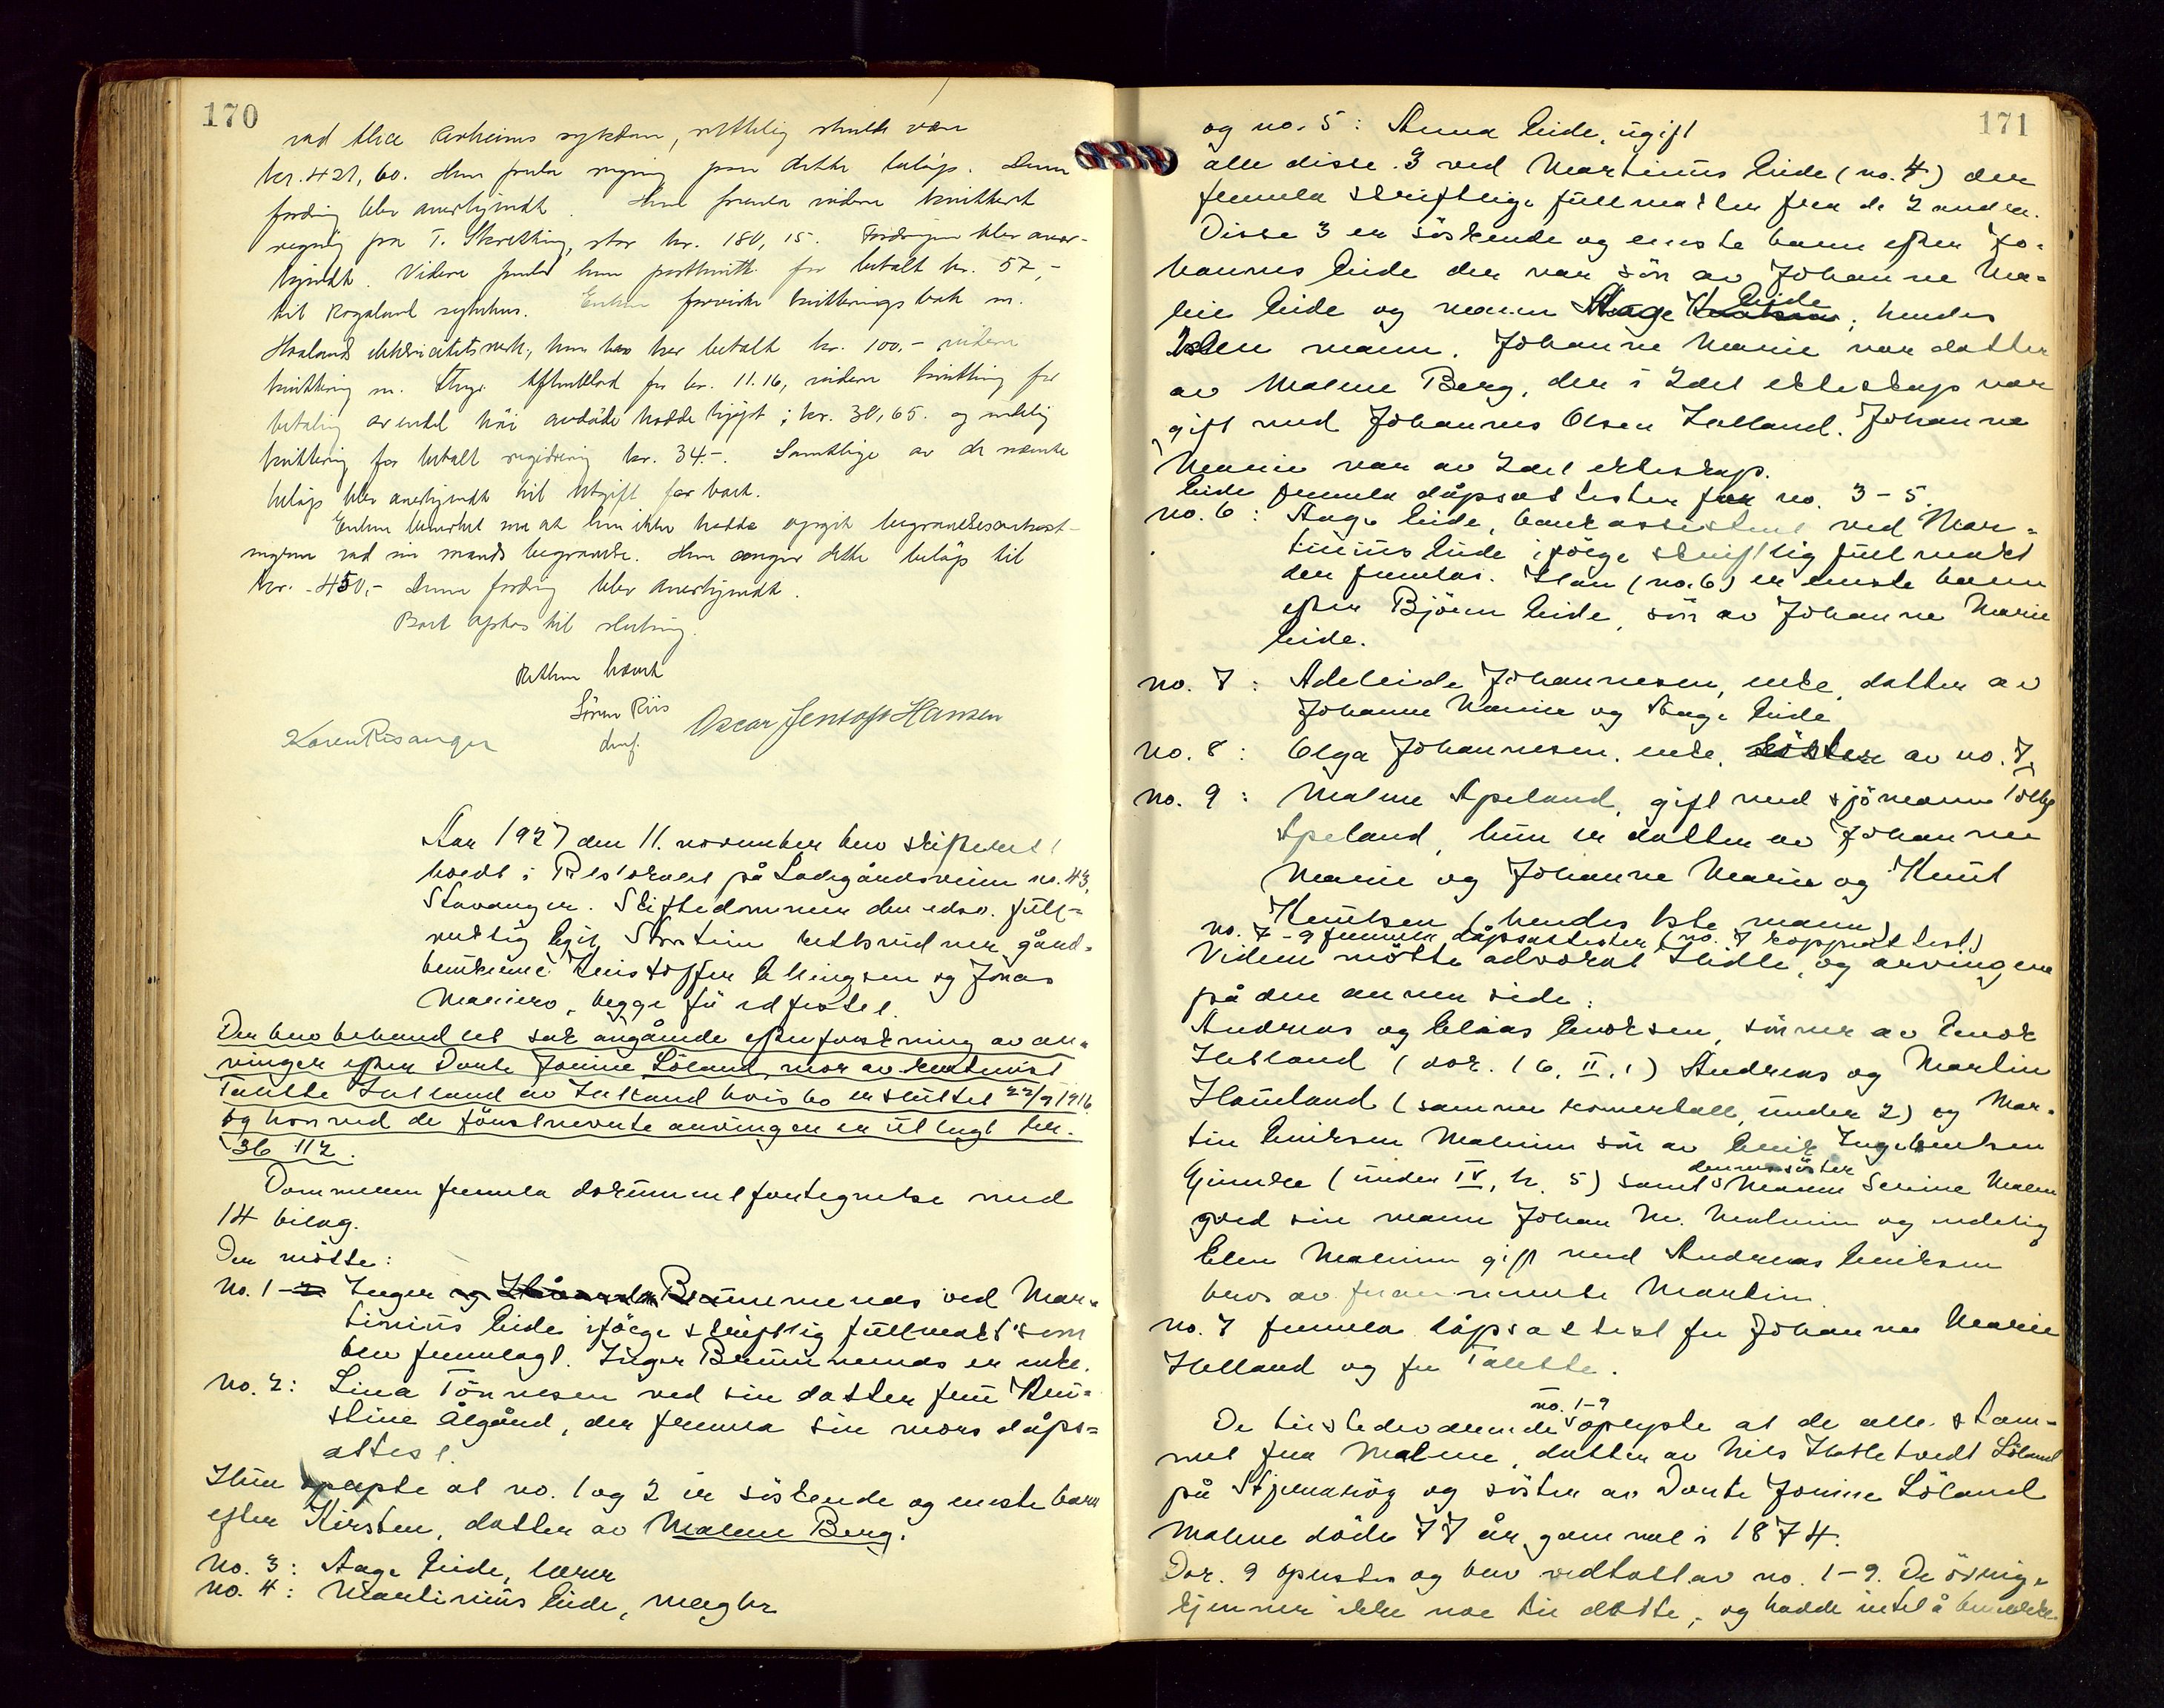 170
ved Alice Arheims sykdom, rettelig skulde være
kr. 421,60. Hun fremla regning paa dette beløp. Denne
fordring blev anerkjendt. Hun fremla videre kvittert
regning fra T. Skretting, stor kr. 180,15. Fordringen blev aner-
kjendt. Videre fremla hun postkvitt. for betalt kr. 57,-
til Rogaland sykehus. Enken foreviste kvitteringsbok m.
Haalands elektricitetsverk, hun har her betalt kr. 100,- videre
kvittering m. Stvgr. Aftenblad for kr. 11.16, videre kvittering for
betaling av endel höi avdöde hadde kjöpt; kr. 30,65. og endelig
kvittering for betalt kr. 34.-. Samtlige av de nævnte
beløp blev anerkjendt til utgift for boet.
Enken bemerket nu at hun ikke hadde opgit begravelsesomkost-
ningene ved sin mands begravelse. Hun angir dette beløp til
kr. 450,- Denne fordring blev anerkjendt.
Boet optas til slutning.
Retten hævet
Søren Riis
Karen Risanger
dmf.
Oscar Jentoft Hansen
Aar 1927 den 11. november blev skifterett
holdt i Rettslokalet på Ladegårdsveien nr. 43,
Stavanger. Skiftedommer den edsv. full-
mektig Egil rettsvidner gård-
brukerne Kristoffer Ellingsen og Jonas
Maniero, begge fü edfestet.
Der blev behandlet sak angående efterforskning av ar-
vinger efter Dorte Jonine Löland, mor av rentenist
Talette Helland av Helland hvis bo er sluttet 22/9 1916
og hvorved de fönstnevnte arvinger er utlagt kr.
36 112.
Dommeren fremla dokumentfortegnelse med
14 bilag.
Der mötte:
No. 1 Inger Brümmenæs ved Mar-
tinius Eide ifölge skriftlig fullmakt som
blev fremlagt. Inger Brümmenæs er enke.
No. 2: Lina Tönnesen ved sin datter frü Kri-
stine Ålgård, der fremla sin mors dåps-
attest.
Hun oplyste at no. 1 og 2 er söskende og eneste barn
efter Kirsten, datter av Malene Berg.
No. 3: Aage Eide, lærer
No. 4: Martinius Eide, megler
171
og no. 5: Anna Eide, ugift
alle disse 3 ved Martinius Eide (no. 4) der
fremla skriftlige fullmakter fra de 2 andre.
Disse 3 er söskende og eneste barn efter Jo-
hannes Eide der var sön av Johanne Ma-
rie Eide og mann Aage Eide, hendes
2den mann. Johanne Marie var datter
av Malene Berg, der i 2det ekteskap var
gift med Johannes Olsen Helland. Johanne
Marie var av 2det ekteskap.
Eide fremla dåpsattester for no. 3-5.
no. 6: Aage Eide, bankassistent ved Mar-
tinius Eide ifölge skriftlig fullmakt
der fremlas. Han (no. 6) er eneste barn
efter Björn Eide, sön av Johanne Marie
Eide.
no. 7: Adeleide Johannesen, enke, datter av
Johanne Marie og Aage Eide
no. 8: Olga Johannesen, enke, söster av no. 7.
no. 9: Malene Apeland, gift med sjömann Tollef
Apeland, hun er datter av Johanne
Marie og Johanne Marie og Knut
Knutsen (hendes 1ste mann)
no. 7-9 fremla dåpsattester (no. 7 koppeattest)
Videre mötte advokat Hidle, og arvingene
på den annen side:
Andreas og Elias Enoksen, sönner av Enok
Helland (dok. 16, II, 1) Andreas og Martin
Haüeland (samme romertall under 2) og Mar-
tin Eniksen Malmin sön av Erik Ingebretsen
Gjerndre (under IV, h. 5) samt dennes söster Maren Serine Malm
ved sin mann Johan M. Malmin og endelig
Elen Malmin gift med Andreas Eriksen
hvos av fornevnte Martin.
no. 7 fremla dåpsattest for Johanne Marie
Helland og for Talette.
De tilstedeværende no. 1-9 oplyste at de alle stam-
met fra Malene, datter av Nils Hatletvedt Löland
på Stjernaröy og söster av Dorte Jonine Löland
Malene döde 77 år gammel i 1874.
Dok. 9 oplestes og blev vedtatt av no. 1-9. De övrige
kjenner ikke noe til dette, og hadde intet å bemerke.